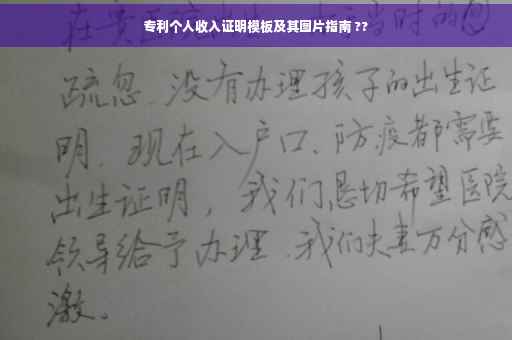 专利个人收入证明模板及其图片指南 ??
疏忽、没有办理孩子的出生证
明、现在入户口、防疫都需要
出生证明，我们恳切希望医院
领导给予办理、我们夫妻万分感
激。